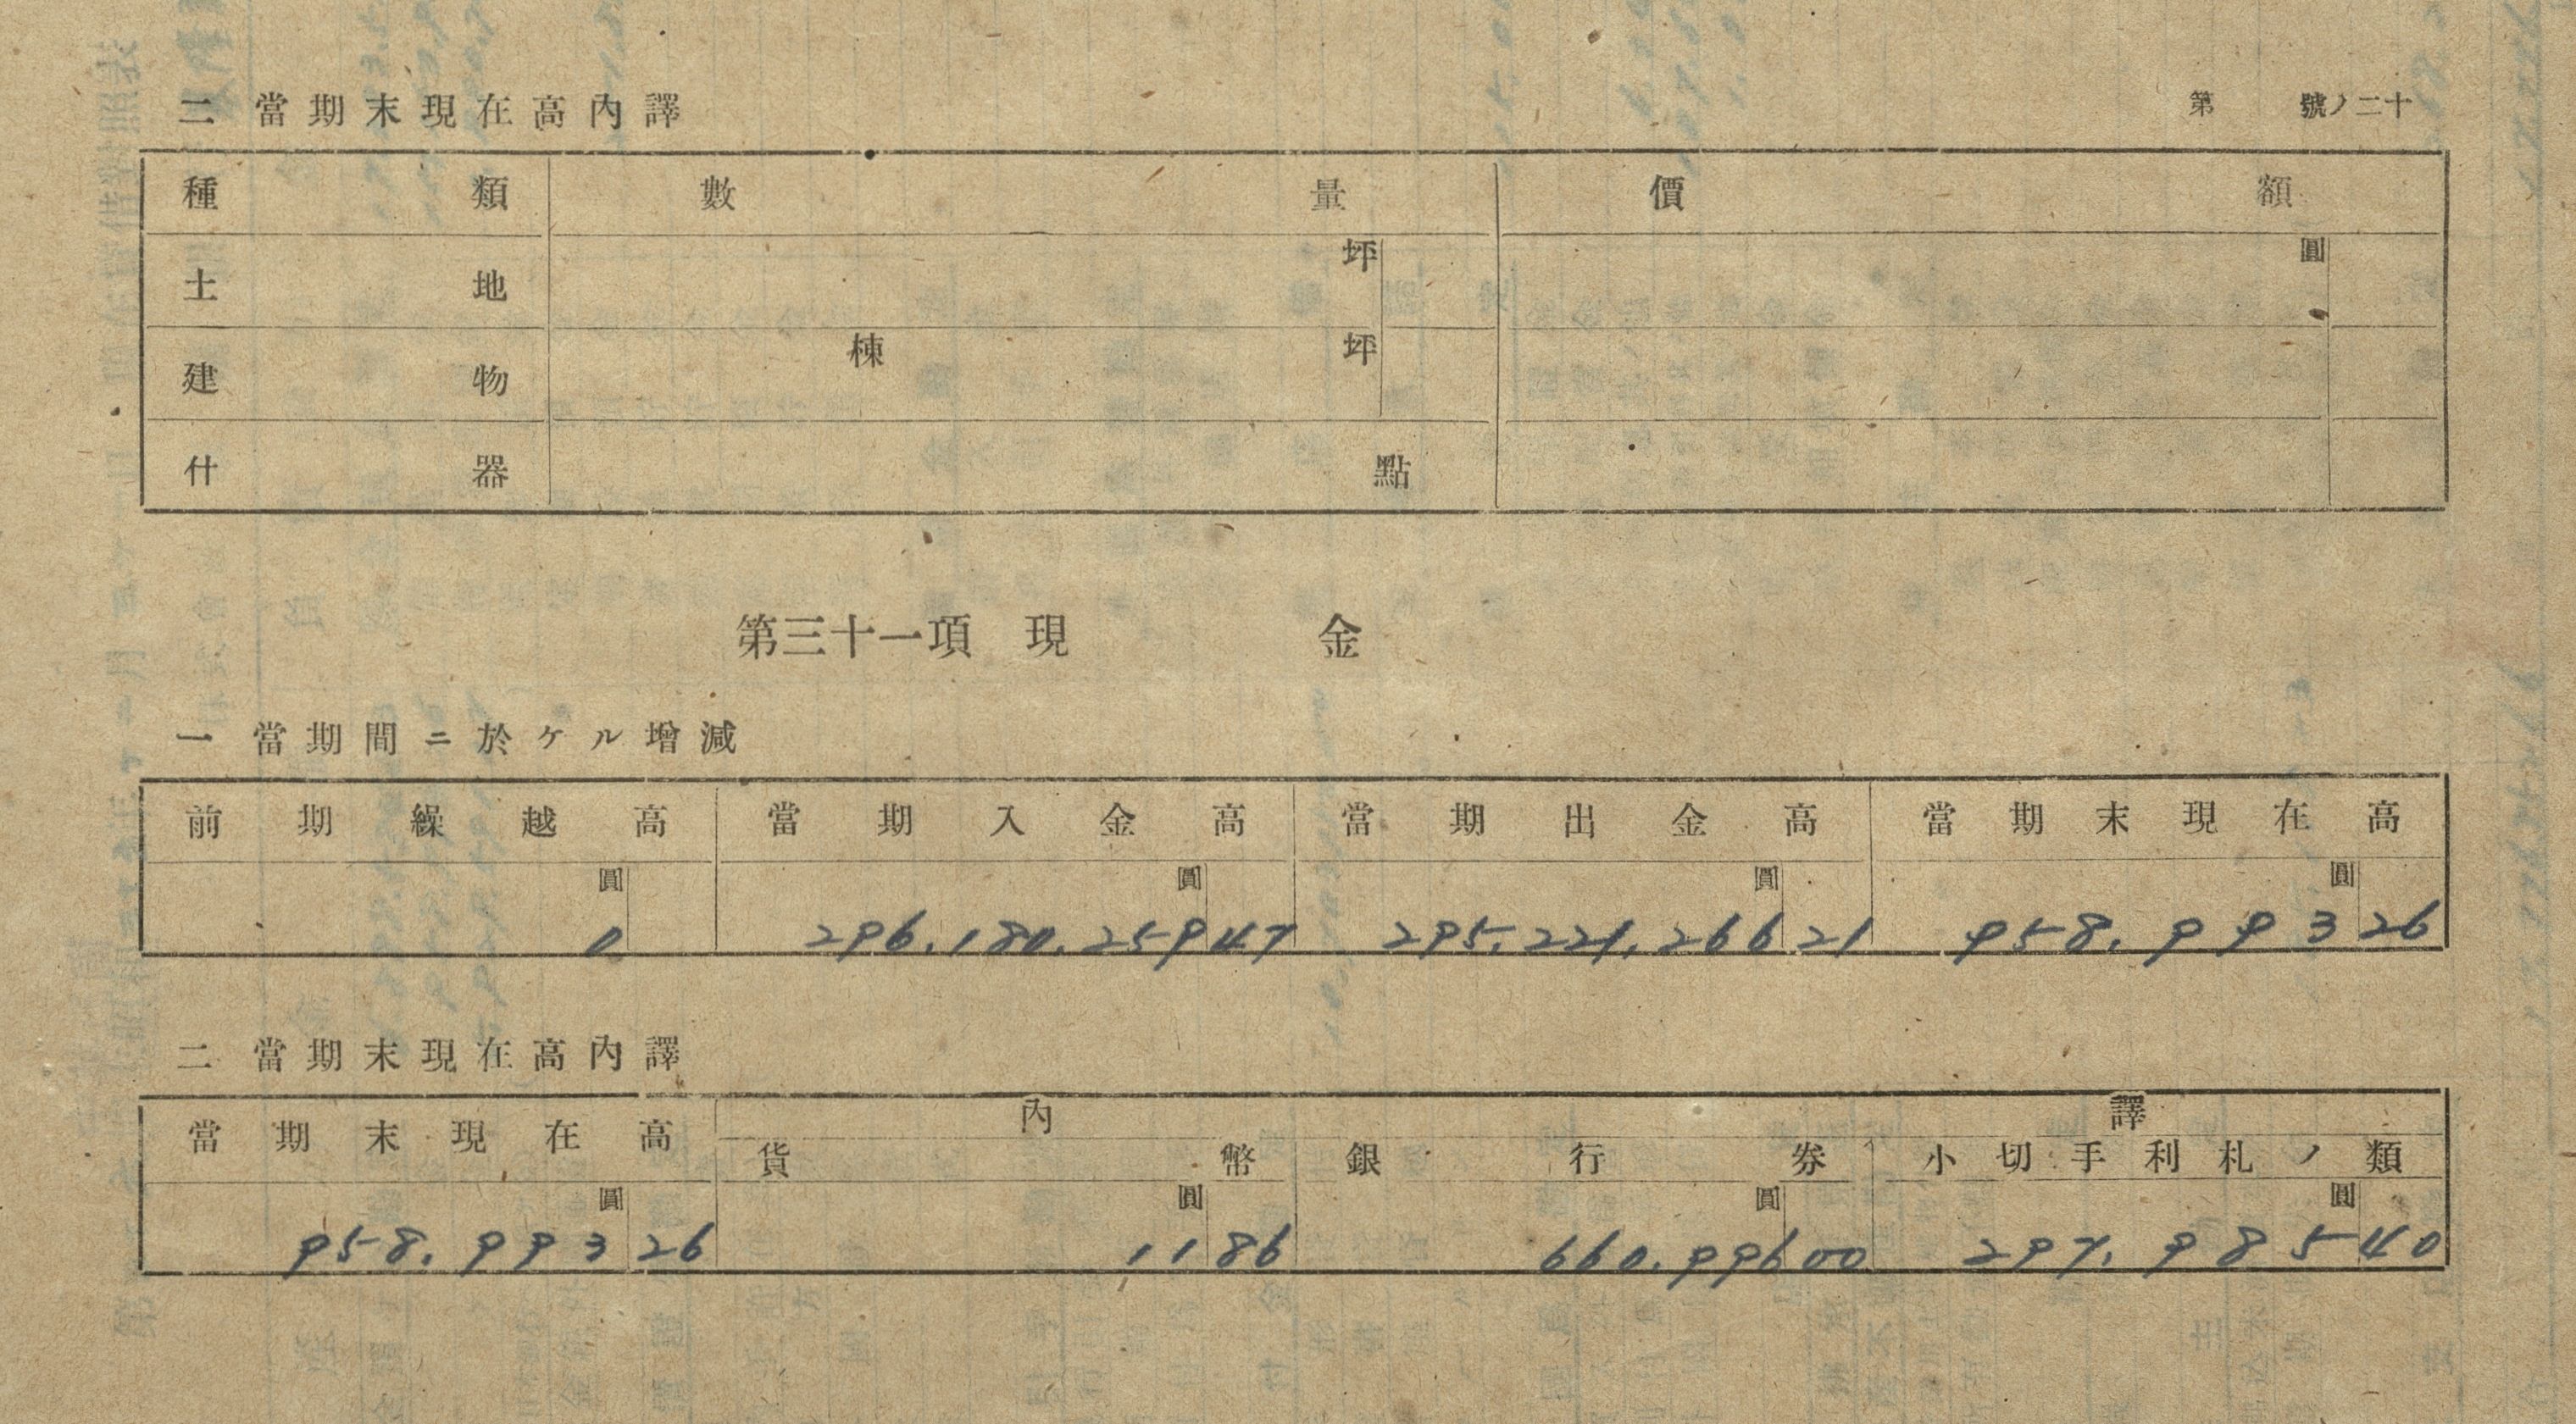 二 當期末現在高內譯 第 號ノ二十
種類 數量 價額
土地 坪 圓
建物 棟 坪
什器 點
第三十一項 現金
一 當期間ニ於ケル增減
前期繰越高 當期入金高 當期出金高 當期末現在高
圓 圓 圓 圓
0 296,180,259 47 295,221,266 21 958,993 26
二 當期末現在高內譯
當期末現在高 內譯
貨幣 銀行券 小切手利札ノ類
圓 圓 圓 圓
958,993 26 11 86 660,996 00 297,985 40